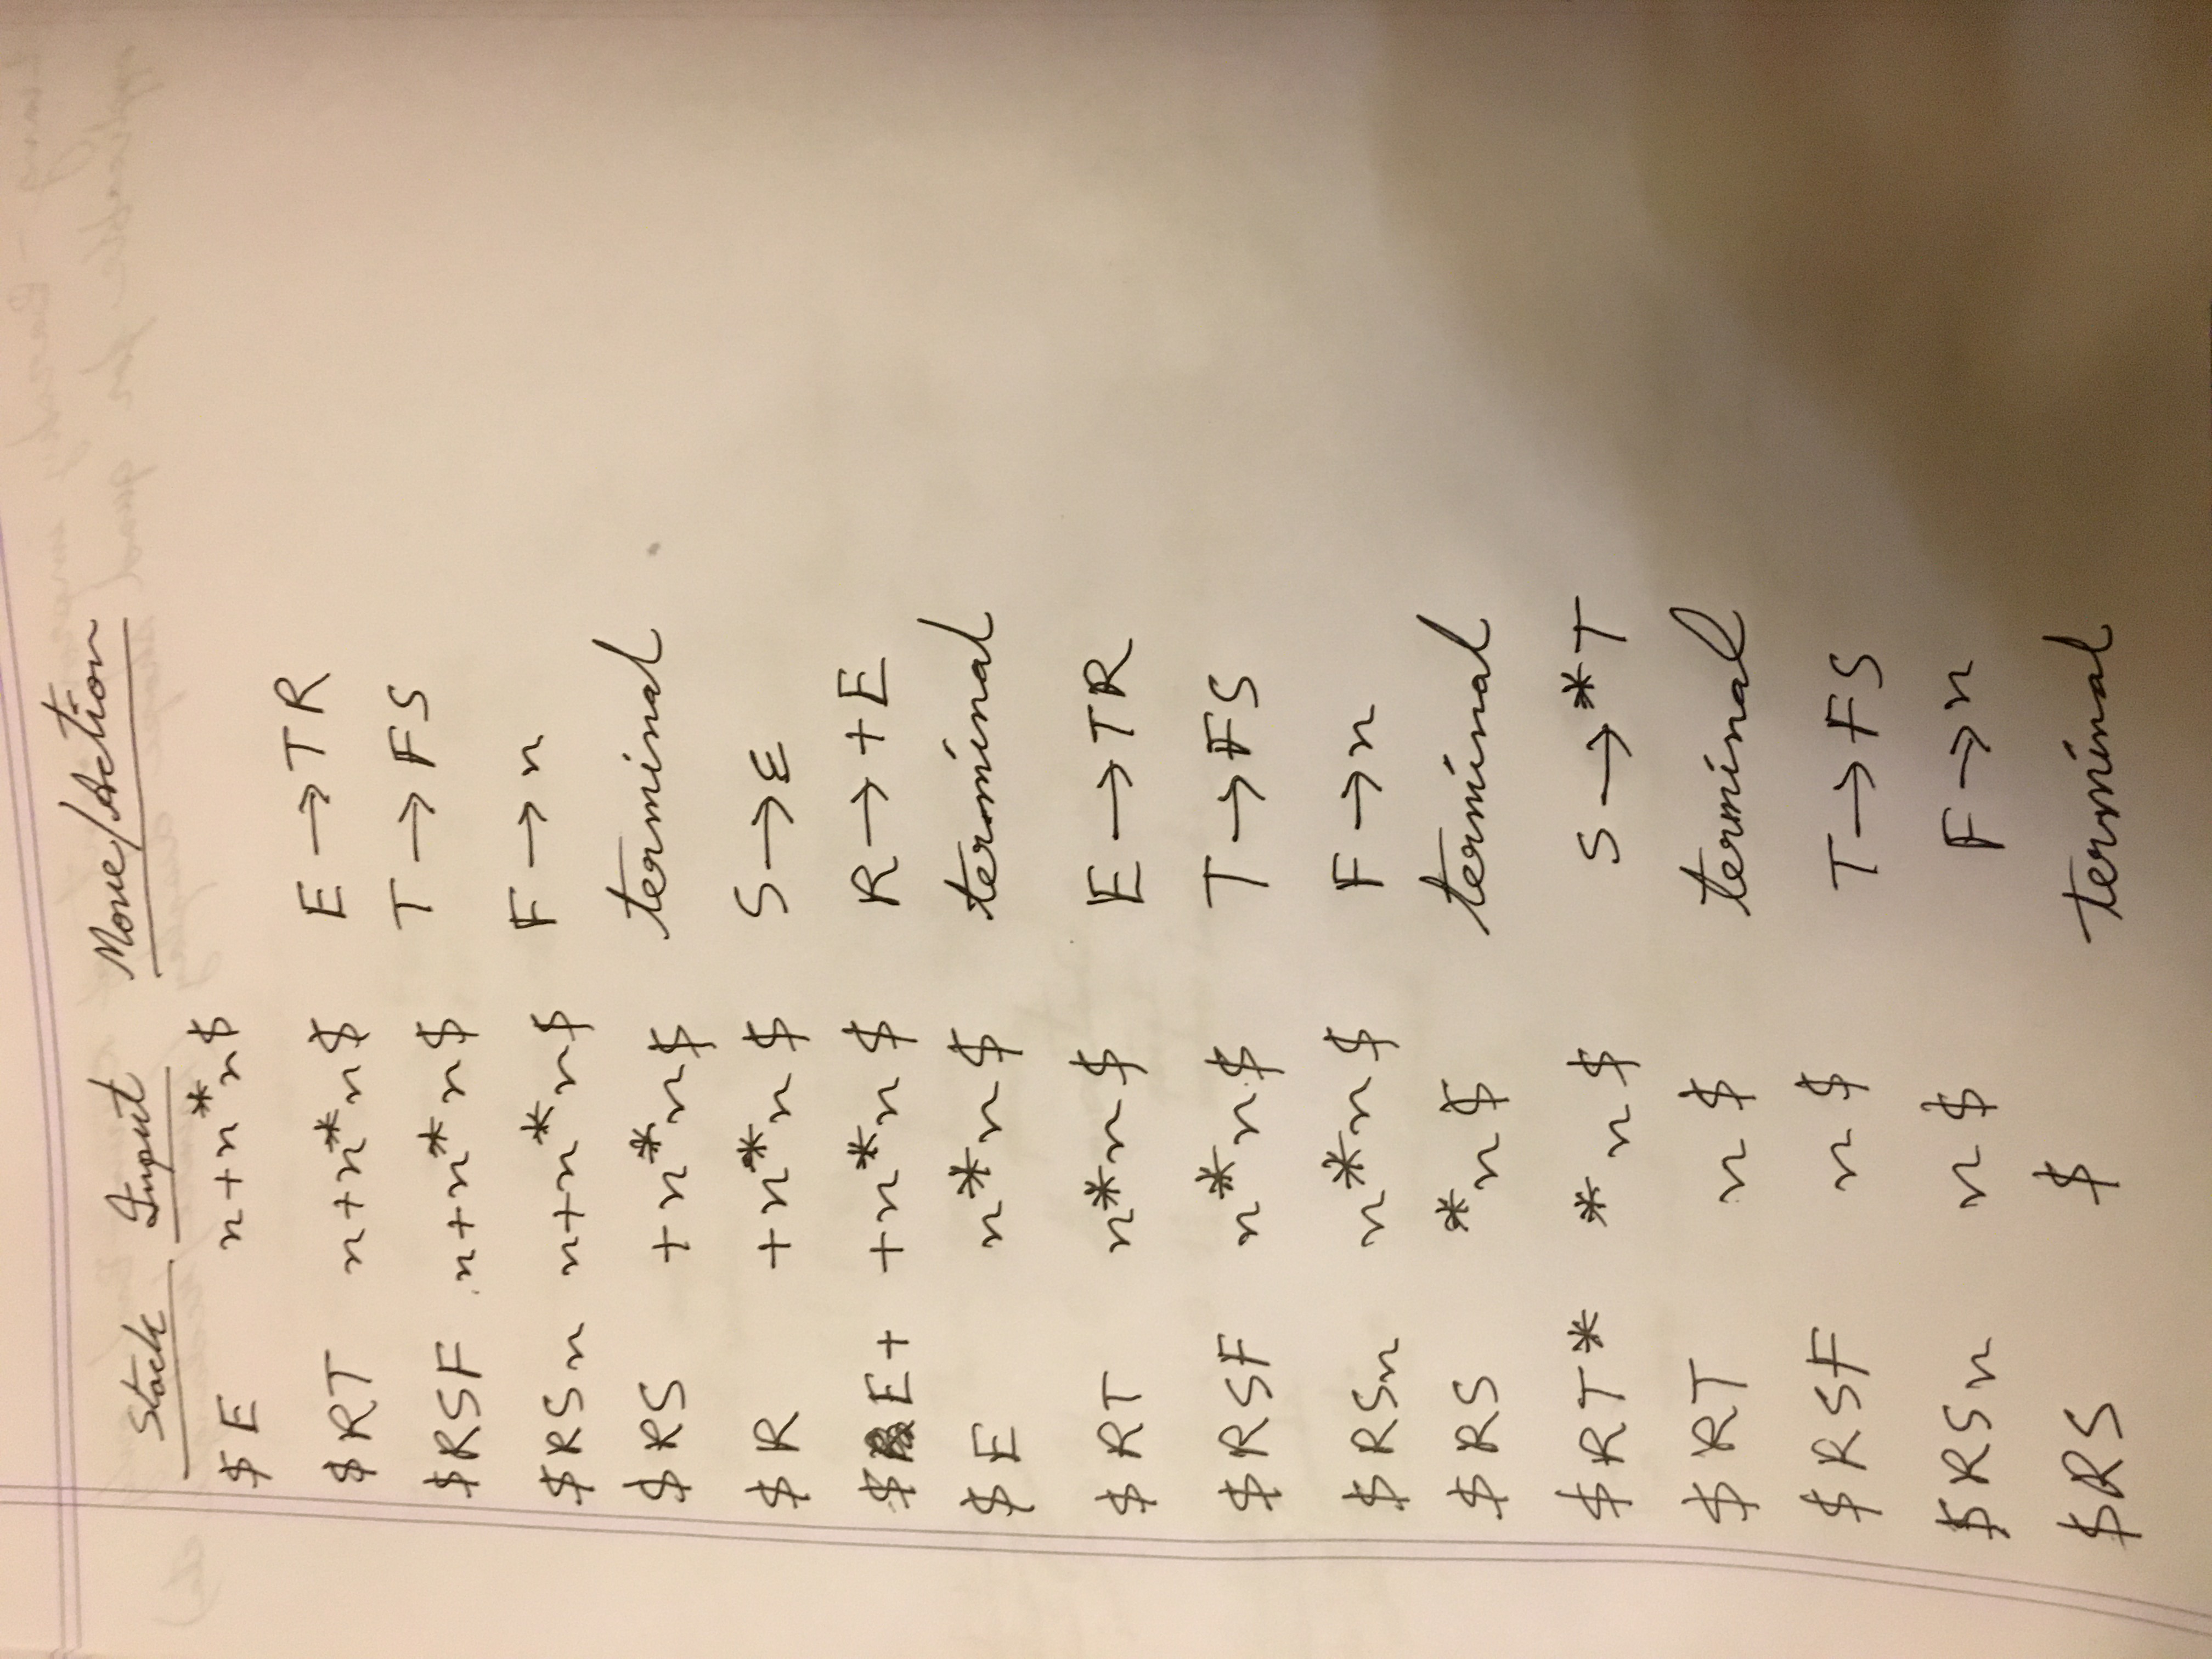 Stack Input Move/Action
$ E n+n*n$
$RT n+n*n$ E → TR
$RSF n+n*n$ T → FS
$RSn n+n*n$ F → n
$RS +n*n$ terminal
$R +n*n$ S → ε
$E+ +n*n$ R → +E
$E n*n$ terminal
$RT n*n$ E → TR
$RSF n*n$ T → FS
$RSn n*n$ F → n
$RS *n$ terminal
$RT* *n$ S → *T
$RT n$ terminal
$RSF n$ T → FS
$RSn n$ F → n
$RS $ terminal